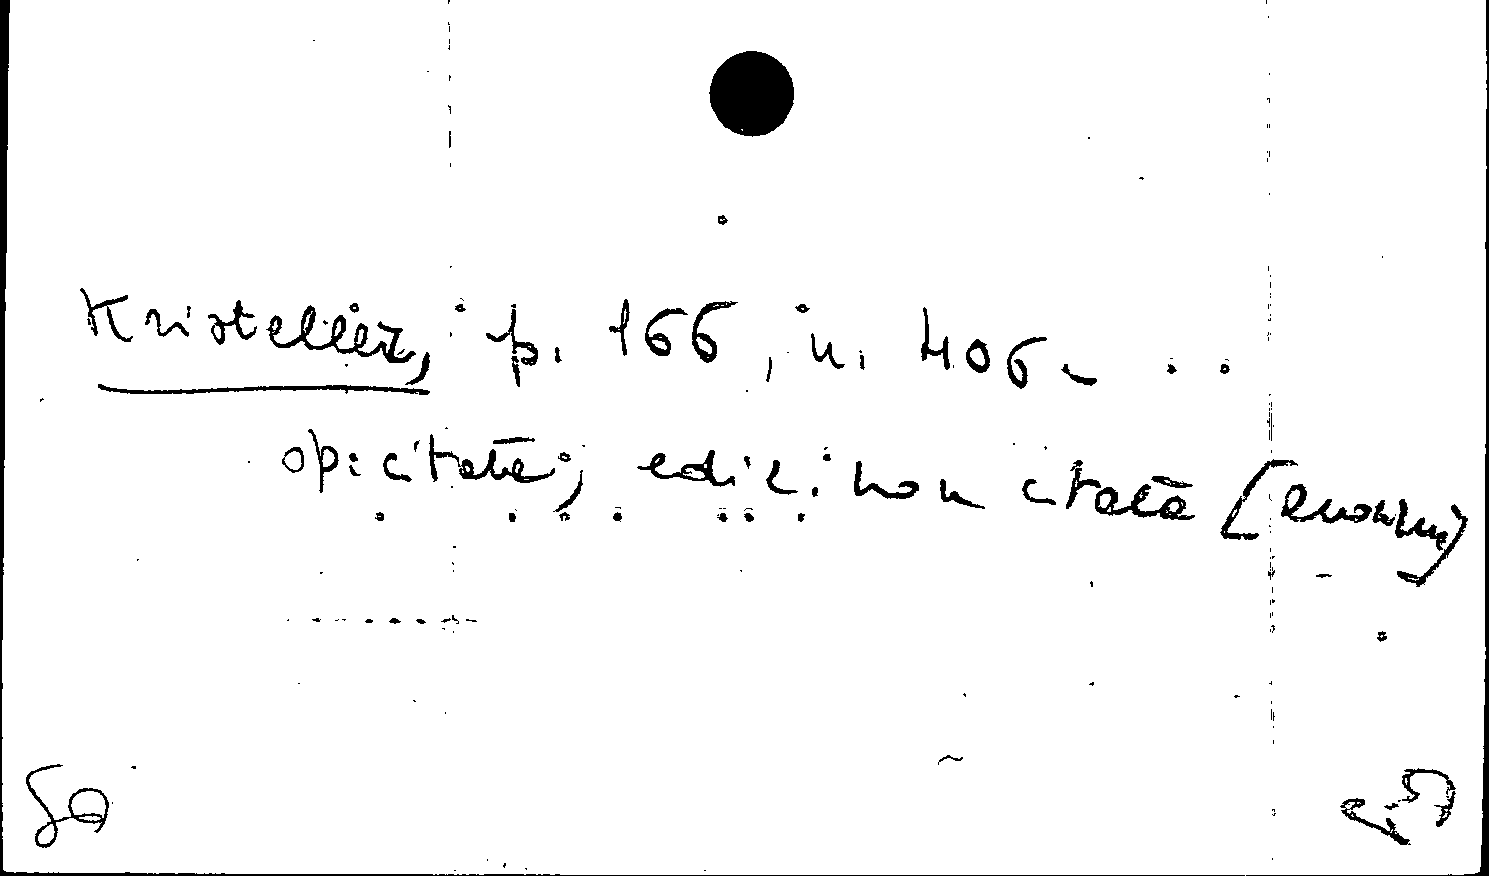 Kristeller, p. 166, n. 406
op: citata; ediz: non citata [anonimi]